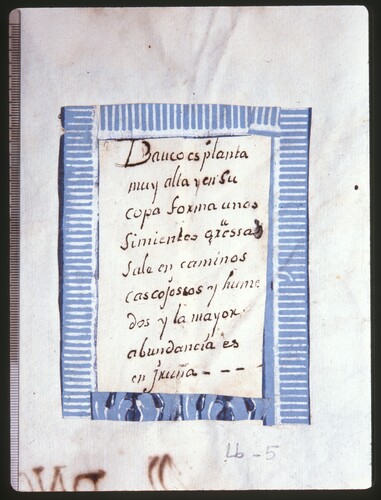 Dauco es planta
muy alta y en su
copa forma unas
simientes gruessas
sale en caminos
cascojossos y hume
dos y la mayor
abundancia es
en jruña - - - -
Lb-5